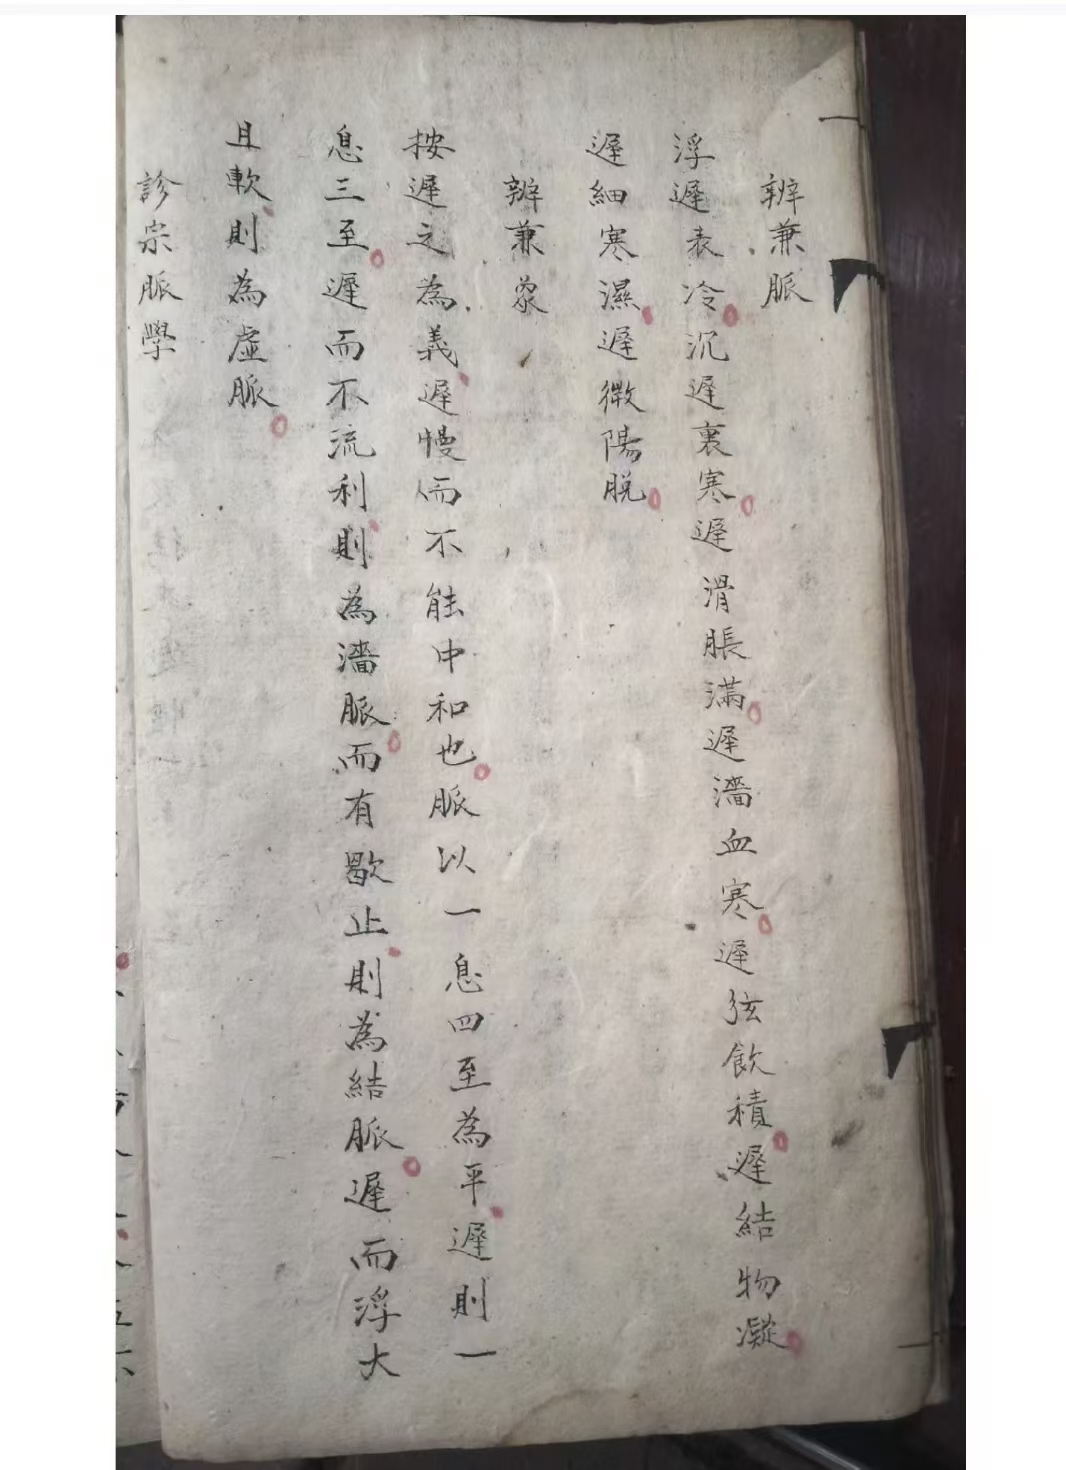 辨兼脈
浮遲表冷沉遲裏寒遲滑脹滿遲濇血寒遲弦飲積遲結物凝
遲細寒濕遲微陽脫
辨兼象
按遲之為義遲慢而不能中和也脈以一息四至為平遲則一
息三至遲而不流利則為濇脈而有歇止則為結脈遲而浮大
且軟則為虛脈
診宗脈學